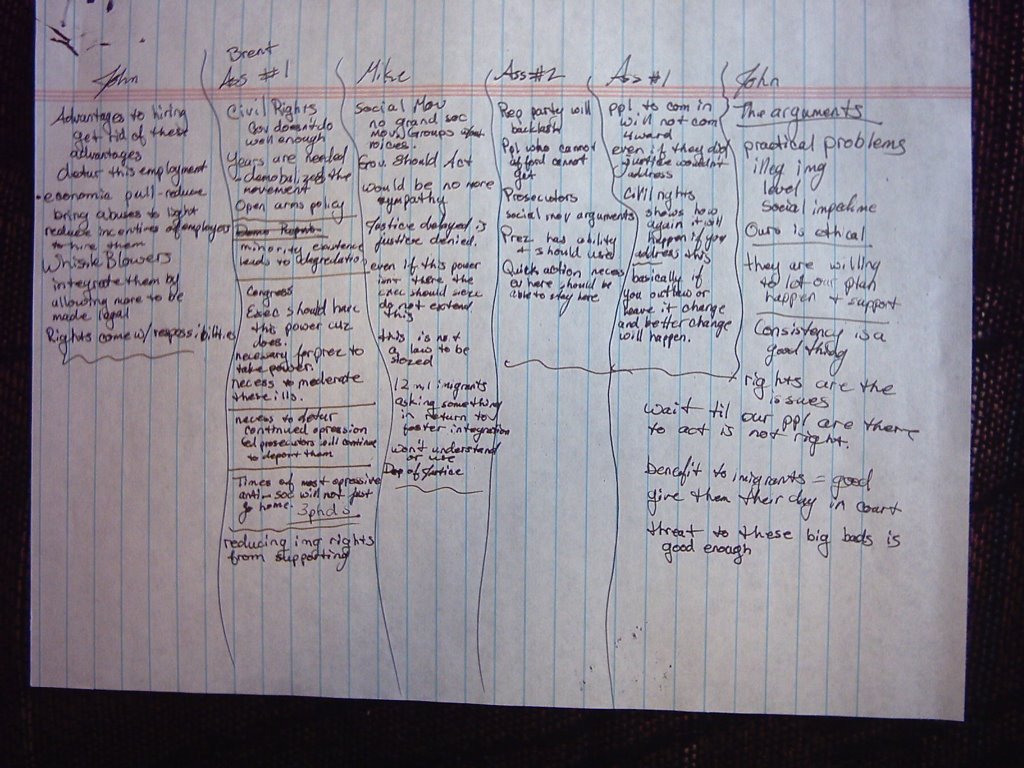 John
Advantages to hiring
get rid of these
advantages
detur this employment
- economic pull - reduce
bring abuses to light
reduce incentives of employers
to hire them
Whisle Blowers
integrate them by
allowing more to be
made legal
Rights come w/
Brent
Ass #1
Civil Rights
Gov doesn't do
well enough
Years are needed
- demobalizes the
movement
Open arms policy
minority existence
leads to degredation
Congress
Exec should have
this power cuz
does.
necessary for prez to
take power.
necess to moderate
these ills.
necess to detur
continued opression
prosecutors will continue
to deport them
Times of most opressive
anti-soc will not just
go home. 3 phds
reducing img rights
from supporting
Mike
Social Mov
no grand soc
mov. Groups
voices.
Gov. Should Act
would be no more
sympathy
Justice delayed is
justice denied.
even if this power
isnt there the
exec should
do not extend
this
this is not
a law to be
12 mil imigrants
asking something
in return to
foster integration
won't understand
or use
Dep of Justice
Ass #2
Rep party will
backlash
Ppl who cannot
afford cannot
get
Prosecutors
social mov arguments
Prez has ability
+ should use
Quick action neces
here should be
able to stay here
Ass #1
ppl to com in
will not com
4ward
even if they did
justice wouldn't
address
Civil rights
shows how
again it will
happen if you
address this
basically if
you outlaw or
leave it change
and better change
will happen.
John
The arguments
practical problems
illeg img
level
social
Ours is ethical
they are willing
to let our plan
happen + support
Consistency is a
good thing
rights are the
issues
wait til our ppl are there
to act is not right.
benefit to imigrants = good
give them their day in court
threat to these big bads is
good enough